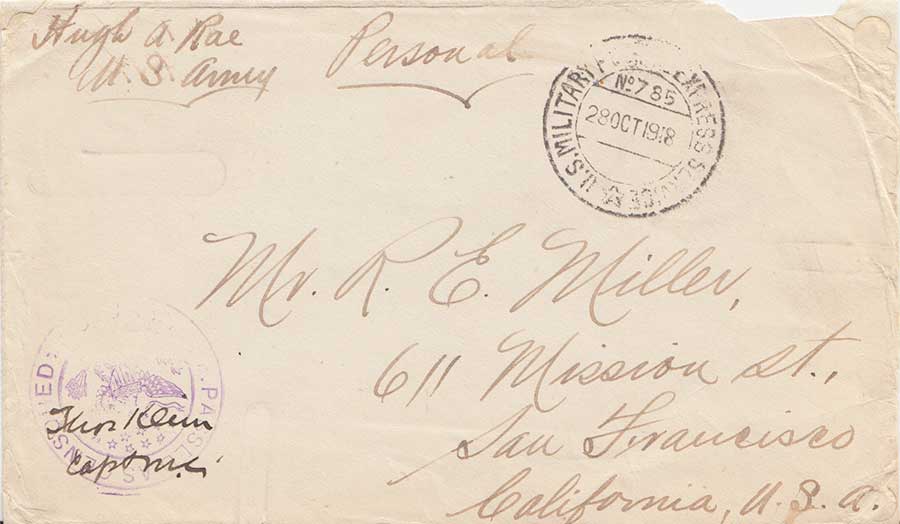 Hugh A Rae
U S Army
Personal
U.S. MILITARY EXPRESS SERVICE
No 785
28 OCT 1918
Mr. R. E. Miller,
611 Mission St.,
San Francisco
California, U.S.A.
PASSED AS CENSORED
Capt